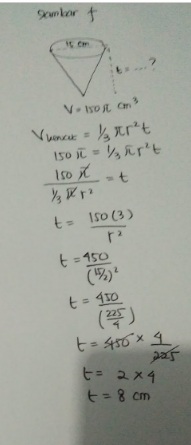 Gambar f
15 cm
t = .... ?
V = 150 π cm³
V kerucut = 1/3 πr²t
150 π = 1/3 πr²t
150 π / 1/3 π r² = t
t = 150 (3) / r²
t = 450 / (15/2)²
t = 450 / (225/4)
t = 450 × 4/225
t = 2 × 4
t = 8 cm